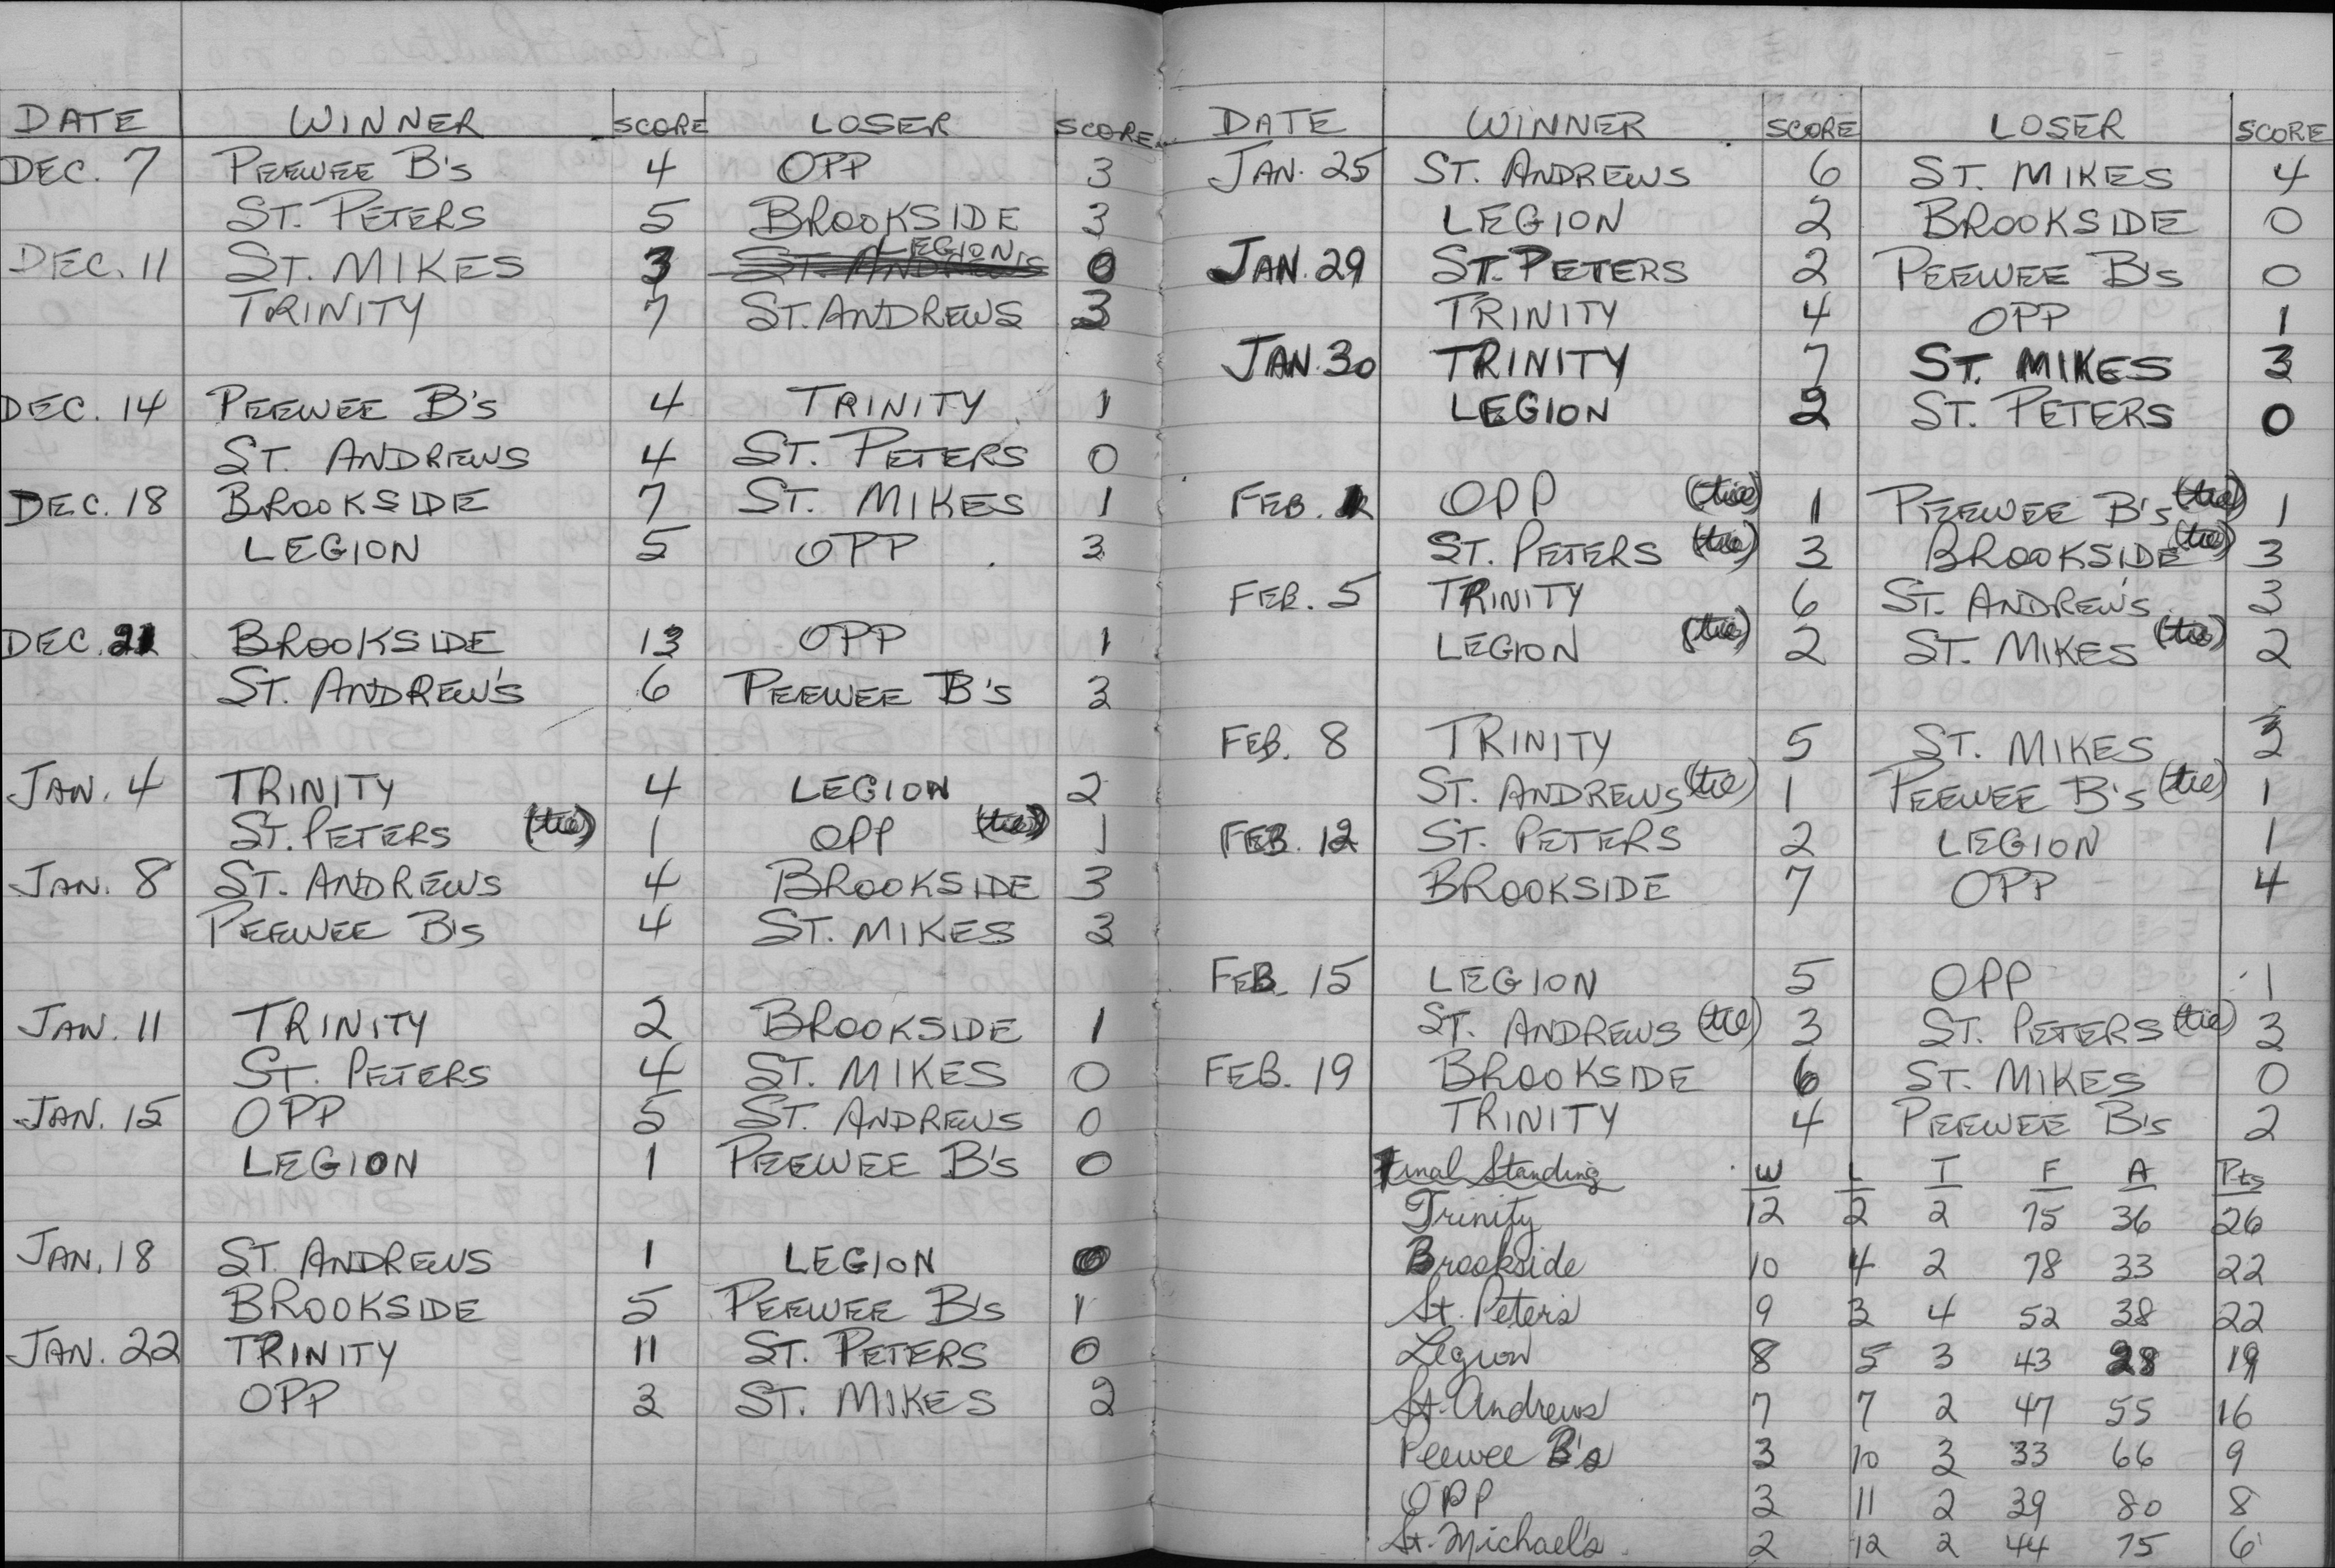 DATE WINNER SCORE LOSER SCORE
DEC. 7 PEEWEE B's 4 OPP 3
ST. PETERS 5 BROOKSIDE 3
LEGION
DEC. 11 ST. MIKES 3 ST. ANDREWS 0
TRINITY 7 ST. ANDREWS 3
DEC. 14 PEEWEE B's 4 TRINITY 1
ST. ANDREWS 4 ST. PETERS 0
DEC. 18 BROOKSIDE 7 ST. MIKES 1
LEGION 5 OPP 3
DEC. 21 BROOKSIDE 13 OPP 1
ST. ANDREW'S 6 PEEWEE B's 3
JAN. 4 TRINITY 4 LEGION 2
ST. PETERS (tie) 1 OPP (tie) 1
JAN. 8 ST. ANDREWS 4 BROOKSIDE 3
PEEWEE B's 4 ST. MIKES 3
JAN. 11 TRINITY 2 BROOKSIDE 1
ST. PETERS 4 ST. MIKES 0
JAN. 15 OPP 5 ST. ANDREWS 0
LEGION 1 PEEWEE B's 0
JAN. 18 ST. ANDREWS 1 LEGION 0
BROOKSIDE 5 PEEWEE B's 1
JAN. 22 TRINITY 11 ST. PETERS 0
OPP 3 ST. MIKES 2
DATE WINNER SCORE LOSER SCORE
JAN. 25 ST. ANDREWS 6 ST. MIKES 4
LEGION 2 BROOKSIDE 0
JAN. 29 ST. PETERS 2 PEEWEE B's 0
TRINITY 4 OPP 1
JAN. 30 TRINITY 7 ST. MIKES 3
LEGION 2 ST. PETERS 0
FEB. OPP (tie) 1 PEEWEE B's (tie) 1
ST. PETERS (tie) 3 BROOKSIDE (tie) 3
FEB. 5 TRINITY 6 ST. ANDREW'S 3
LEGION (tie) 2 ST. MIKES (tie) 2
FEB. 8 TRINITY 5 ST. MIKES 3
ST. ANDREWS (tie) 1 PEEWEE B's (tie) 1
FEB. 12 ST. PETERS 2 LEGION 1
BROOKSIDE 7 OPP 4
FEB. 15 LEGION 5 OPP 1
ST. ANDREWS (tie) 3 ST. PETERS (tie) 3
FEB. 19 BROOKSIDE 6 ST. MIKES 0
TRINITY 4 PEEWEE B's 2
Final Standing W L T F A Pts
Trinity 12 2 2 75 36 26
Brookside 10 4 2 78 33 22
St. Peter's 9 3 4 52 38 22
Legion 8 5 3 43 28 19
St. Andrews 7 7 2 47 55 16
Peewee B's 3 10 3 33 66 9
OPP 3 11 2 39 80 8
St. Michael's 2 12 2 44 75 6